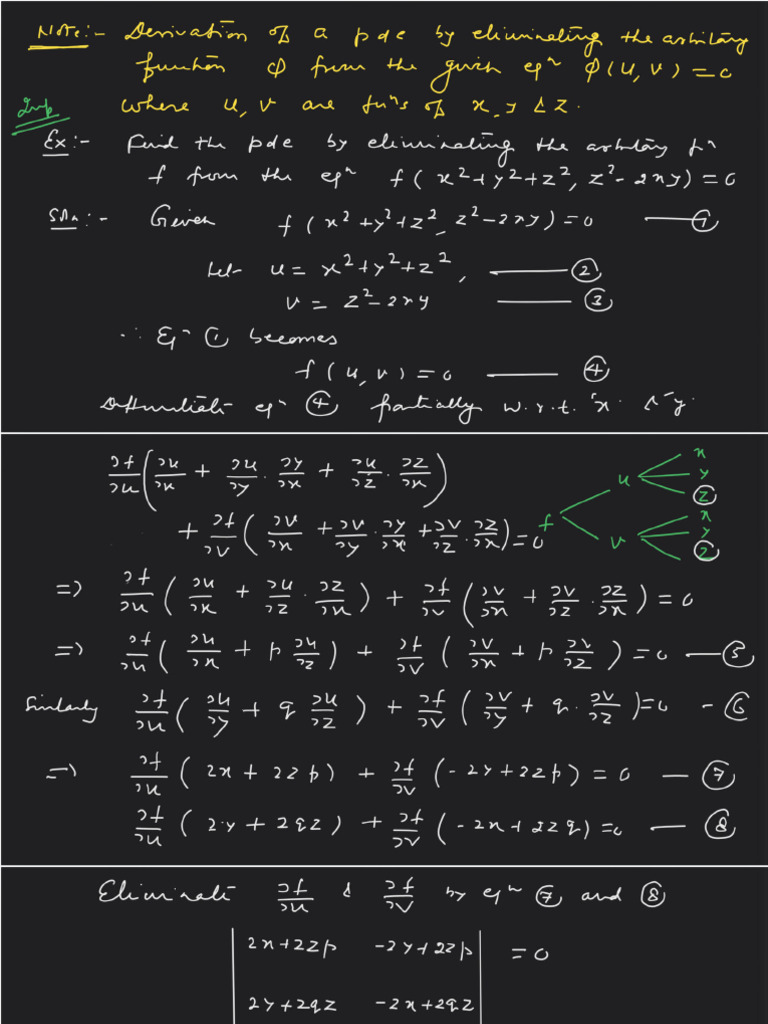 Note:- Derivation of a pde by eliminating the arbitary
function φ from the given eqⁿ φ(u, v) = 0
where u, v are fuⁿs of x, y & z.
Imp
Ex:- Find the pde by eliminating the arbitary fⁿ
f from the eqⁿ f( x²+y²+z², z²-2xy) = 0
Solⁿ:- Given f( x²+y²+z², z²-2xy) = 0 —— ①
Let u = x²+y²+z², —— ②
v = z²-2xy —— ③
∴ Eqⁿ ① becomes
f(u, v) = 0 —— ④
Differentiate eqⁿ ④ partially w.r.t. 'x' & 'y'.
∂f/∂u (∂u/∂x + ∂u/∂y · ∂y/∂x + ∂u/∂z · ∂z/∂x)
+ ∂f/∂v (∂v/∂x + ∂v/∂y · ∂y/∂x + ∂v/∂z · ∂z/∂x) = 0
f
u
x
y
z
v
x
y
z
=> ∂f/∂u (∂u/∂x + ∂u/∂z · ∂z/∂x) + ∂f/∂v (∂v/∂x + ∂v/∂z · ∂z/∂x) = 0
=> ∂f/∂u (∂u/∂x + p ∂u/∂z) + ∂f/∂v (∂v/∂x + p ∂v/∂z) = 0 — ⑤
Similarly ∂f/∂u (∂u/∂y + q ∂u/∂z) + ∂f/∂v (∂v/∂y + q · ∂v/∂z) = 0 - ⑥
=> ∂f/∂u (2x + 2zp) + ∂f/∂v (-2y + 2zp) = 0 — ⑦
∂f/∂u (2·y + 2qz) + ∂f/∂v (-2x + 2zq) = 0 — ⑧
Eliminate ∂f/∂u & ∂f/∂v by eqⁿ ⑦ and ⑧
| 2x+2zp -2y+2zp | = 0
| 2y+2qz -2x+2qz |